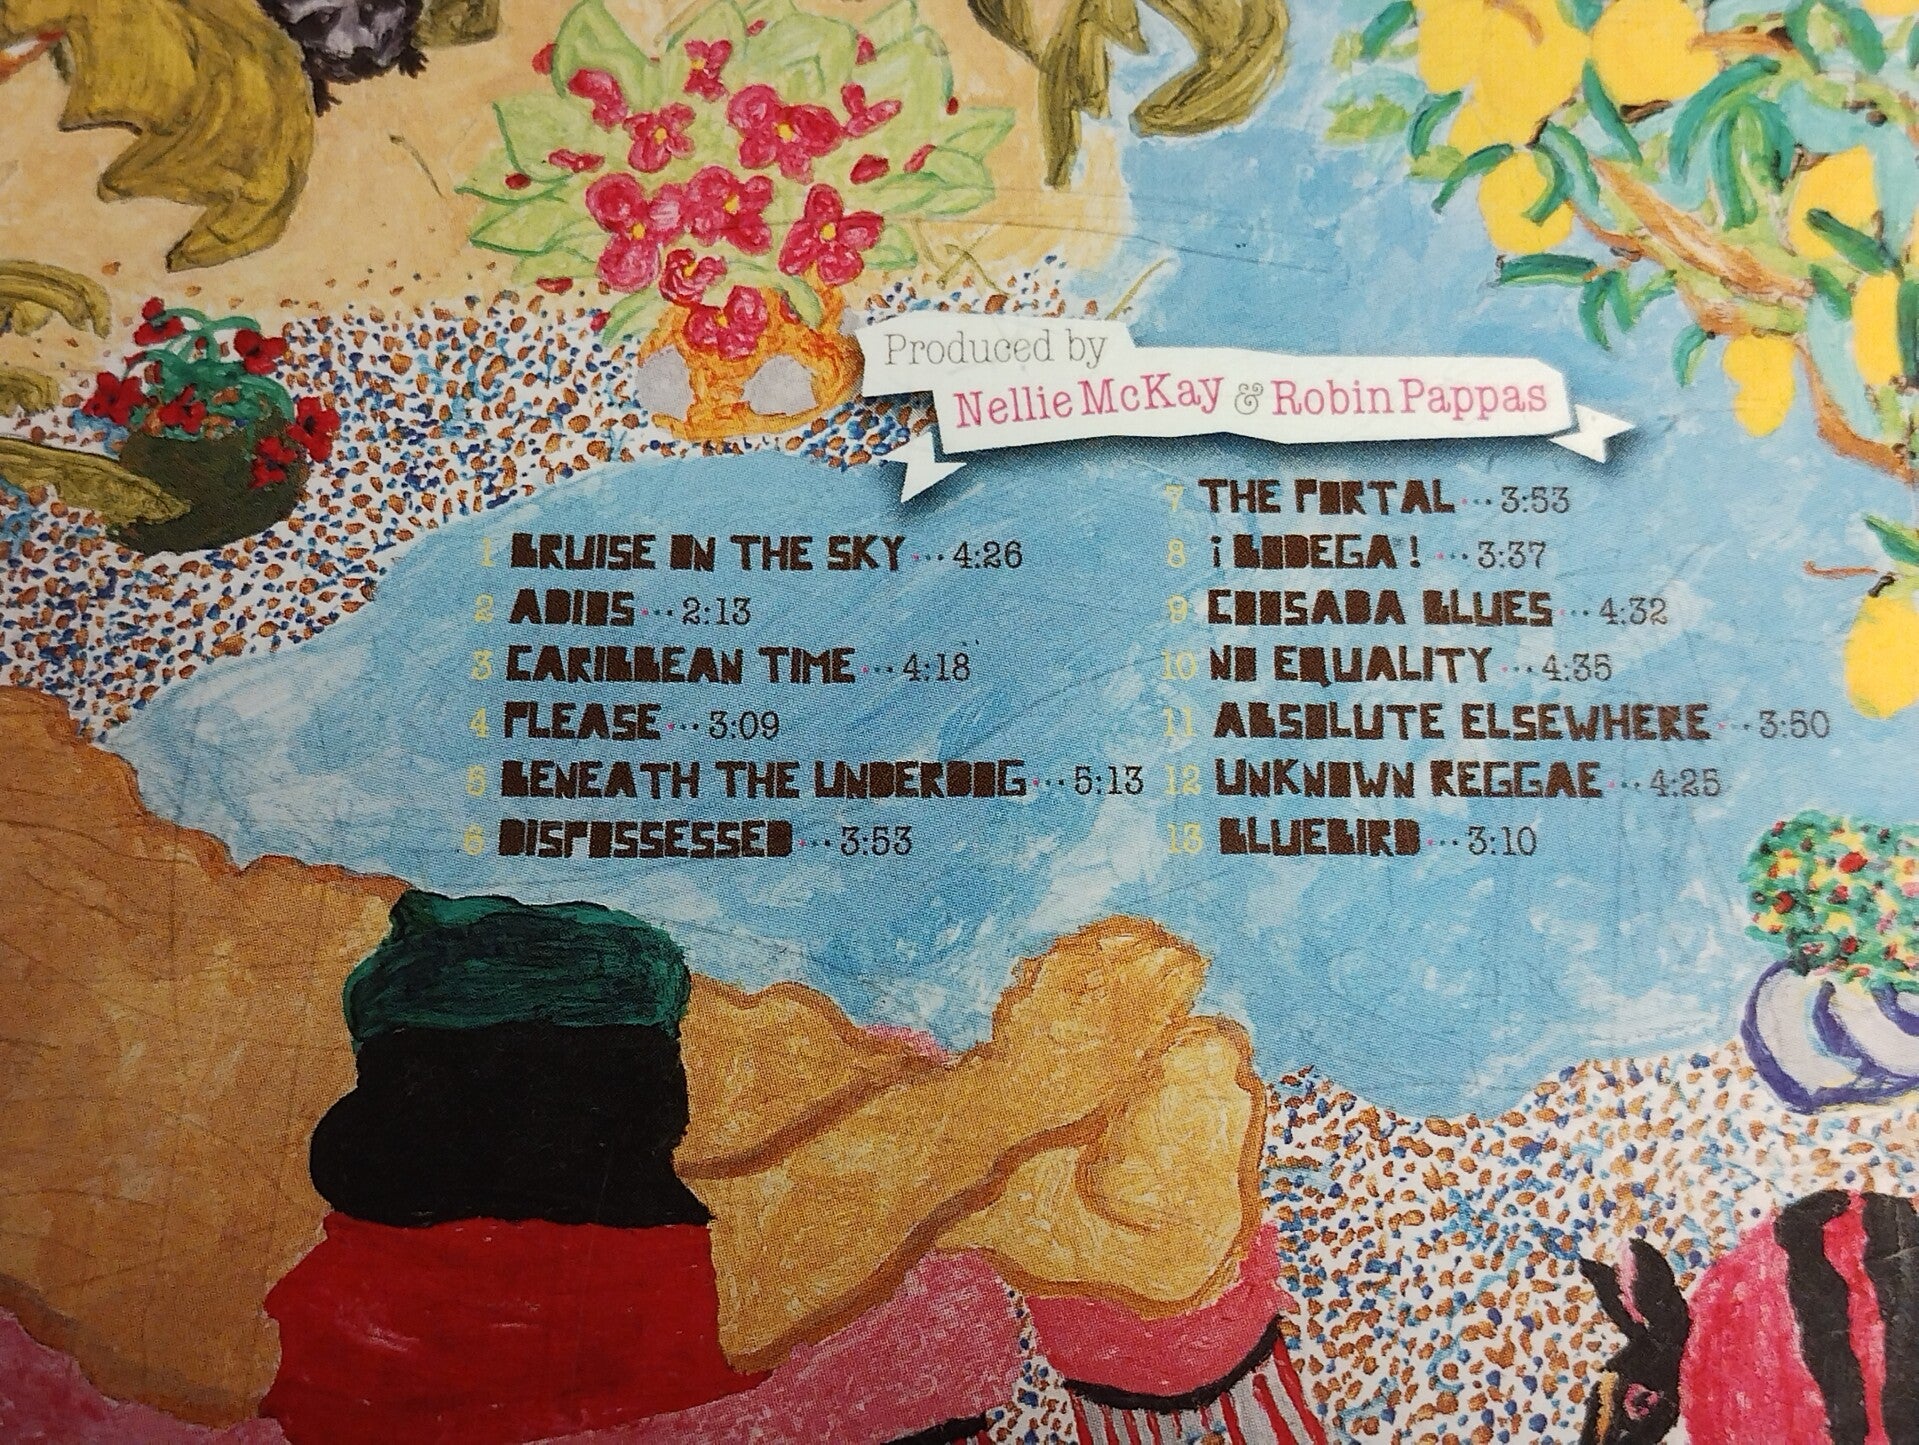 Produced by
Nellie McKay & Robin Pappas
1 BRUISE ON THE SKY ··· 4:26
2 ADIOS ··· 2:13
3 CARIBBEAN TIME ··· 4:18
4 PLEASE ··· 3:09
5 BENEATH THE UNDERDOG ··· 5:13
6 DISPOSSESSED ··· 3:53
7 THE PORTAL ··· 3:53
8 ¡BODEGA! ··· 3:37
9 COOSADA BLUES ··· 4:32
10 NO EQUALITY ··· 4:35
11 ABSOLUTE ELSEWHERE ··· 3:50
12 UNKNOWN REGGAE ··· 4:25
13 BLUEBIRD ··· 3:10